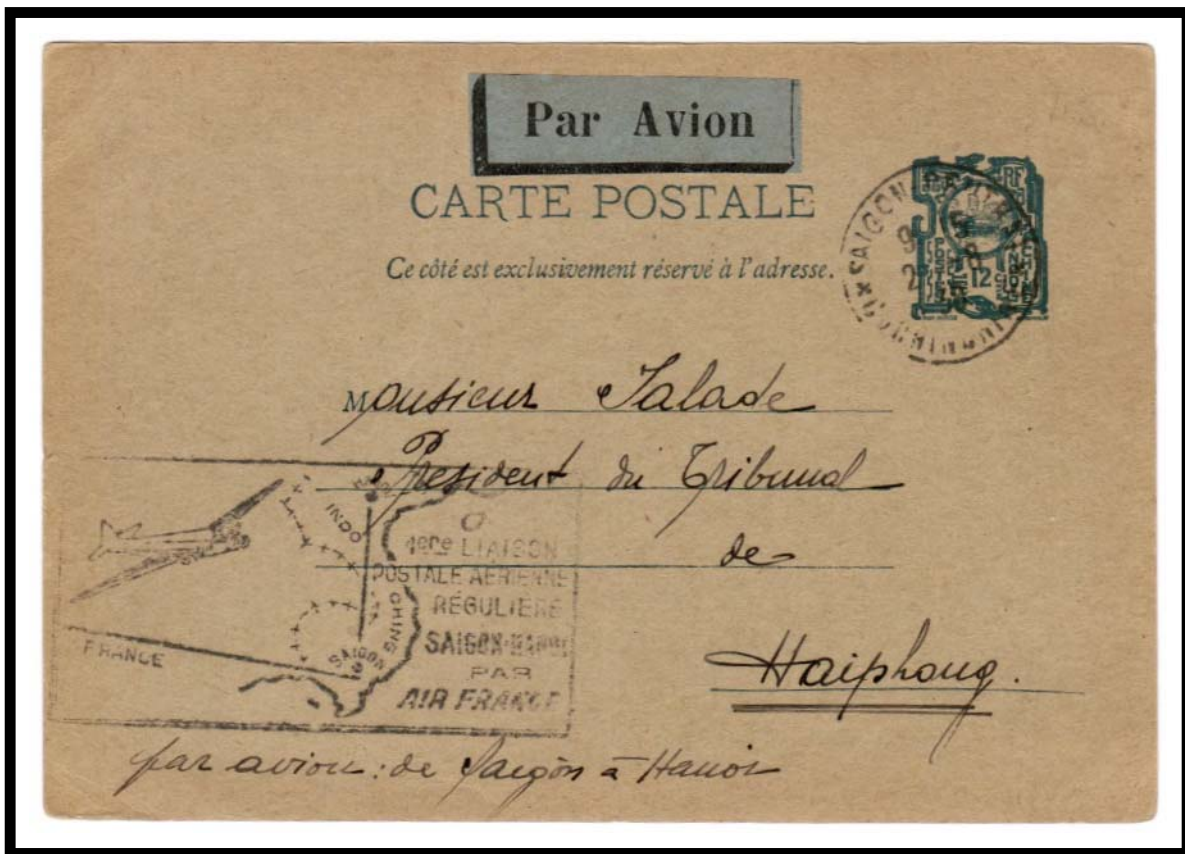 Par Avion
CARTE POSTALE
Ce côté est exclusivement réservé à l'adresse.
SAIGON
12
Monsieur Salade
President du Tribunal
de
Haiphong.
INDO
CHINE
SAIGON
FRANCE
1ère LIAISON
POSTALE AERIENNE
RÉGULIÈRE
SAIGON-HANOI
PAR
AIR FRANCE
par avion: de Saigon à Hanoi